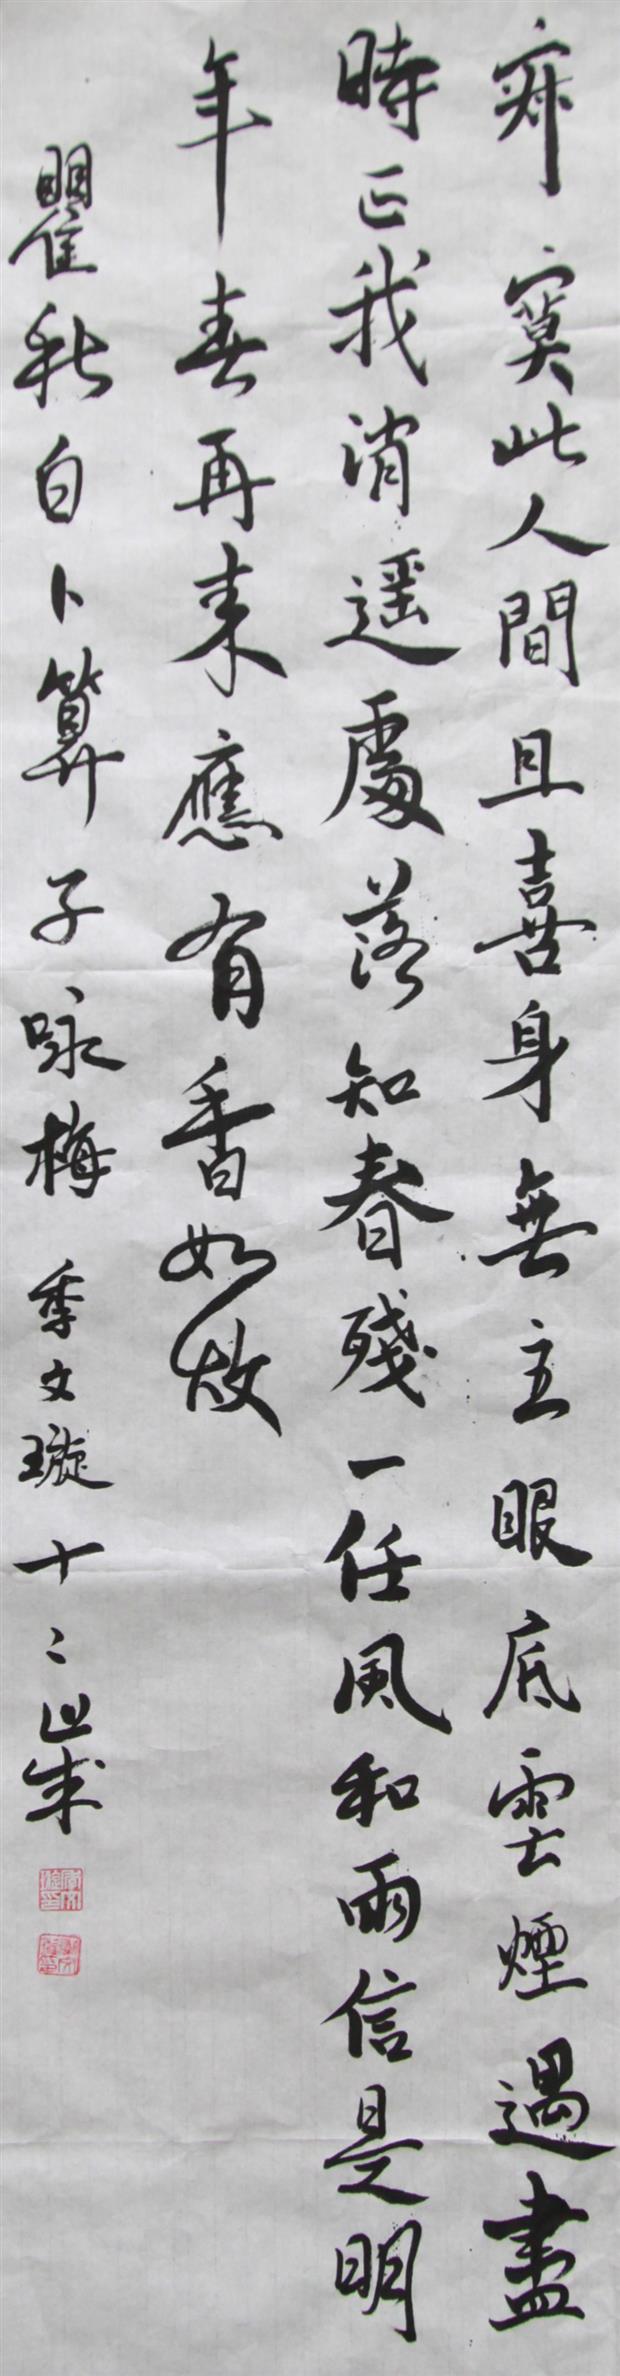 寂寞此人間且喜身無主眼底雲煙過盡
時正我消遥處落知春殘一任風和雨信是明
年春再来應有香如故
瞿秋白卜算子咏梅 季文璇十二歲